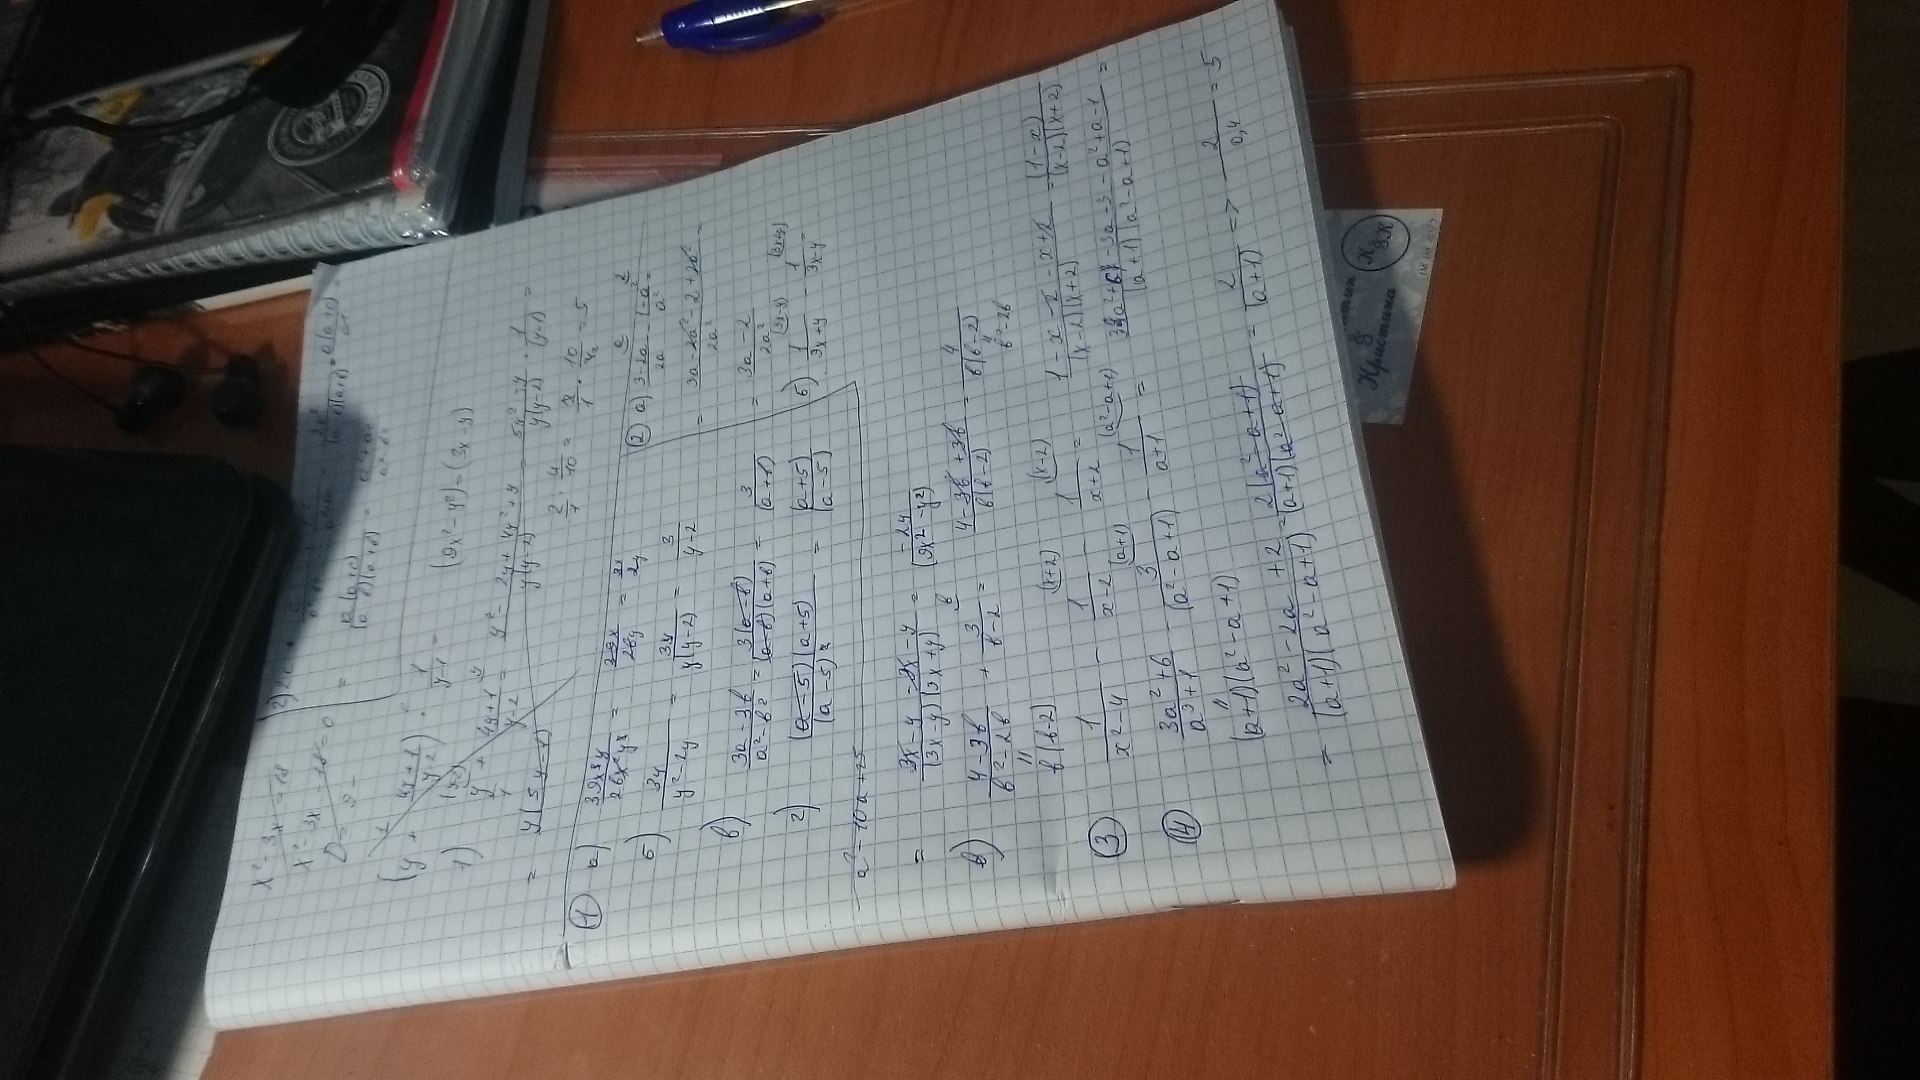 x² - 3x - 18
x² - 3x - 18 = 0
D = 9 -
(9x² - y²) = (3x - y)
(y + 4y+1 / y-2) · 1 / y-1 =
1) y/1 + 4y+1 / y-2 = y² - 2y + 4y² + y / y(y-2) = 5y² - y / y(y-2) · 1 / (y-1) =
= y(5y-1)
2/1 : 4/10 = 2/1 · 10/4₂ = 5
① а) 39x³y / 26x²y³ = 39x / 26y = 3x / 2y
б) 3y / y² - 2y = 3y / y(y-2) = 3 / y-2
в) 3a - 3b / a² - b² = 3(a-b) / (a-b)(a+b) = 3 / (a+b)
г) (a-5)(a+5) / (a-5)² = (a+5) / (a-5)
a² - 10a + 25
② а) 3-2a / 2a - 1-a² / a² =
= 3a - 2a² - 2 + 2a² / 2a² =
= 3a - 2 / 2a²
б) 1 / 3x+y (3x-y) - 1 / 3x-y (3x+y)
= 3x - y - 3x - y / (3x-y)(3x+y) = -2y / (9x² - y²)
в) 4 - 3b / b² - 2b + 3 / b-2 = 4 - 3b + 3b / b(b-2) = 4 / b(b-2)
b(b-2)
b² - 2b
③ 1 / x² - 4 - 1 / x-2 (x+2) - 1 / x+2 (x-2) = 1 - x - 2 - x + 2 / (x-2)(x+2) = (1-x) / (x-2)(x+2)
④ 3a² + 6 / a³ + 1 - 3 / (a² - a + 1) (a+1) - 1 / a+1 (a² - a + 1) = 3a² + 6 - 3a - 3 - a² + a - 1 / (a+1)(a² - a + 1) =
(a+1)(a² - a + 1)
= 2a² - 2a + 2 / (a+1)(a² - a + 1) = 2(a² - a + 1) / (a+1)(a² - a + 1) = 2 / (a+1) => 2 / 0,4 = 5
Кристина